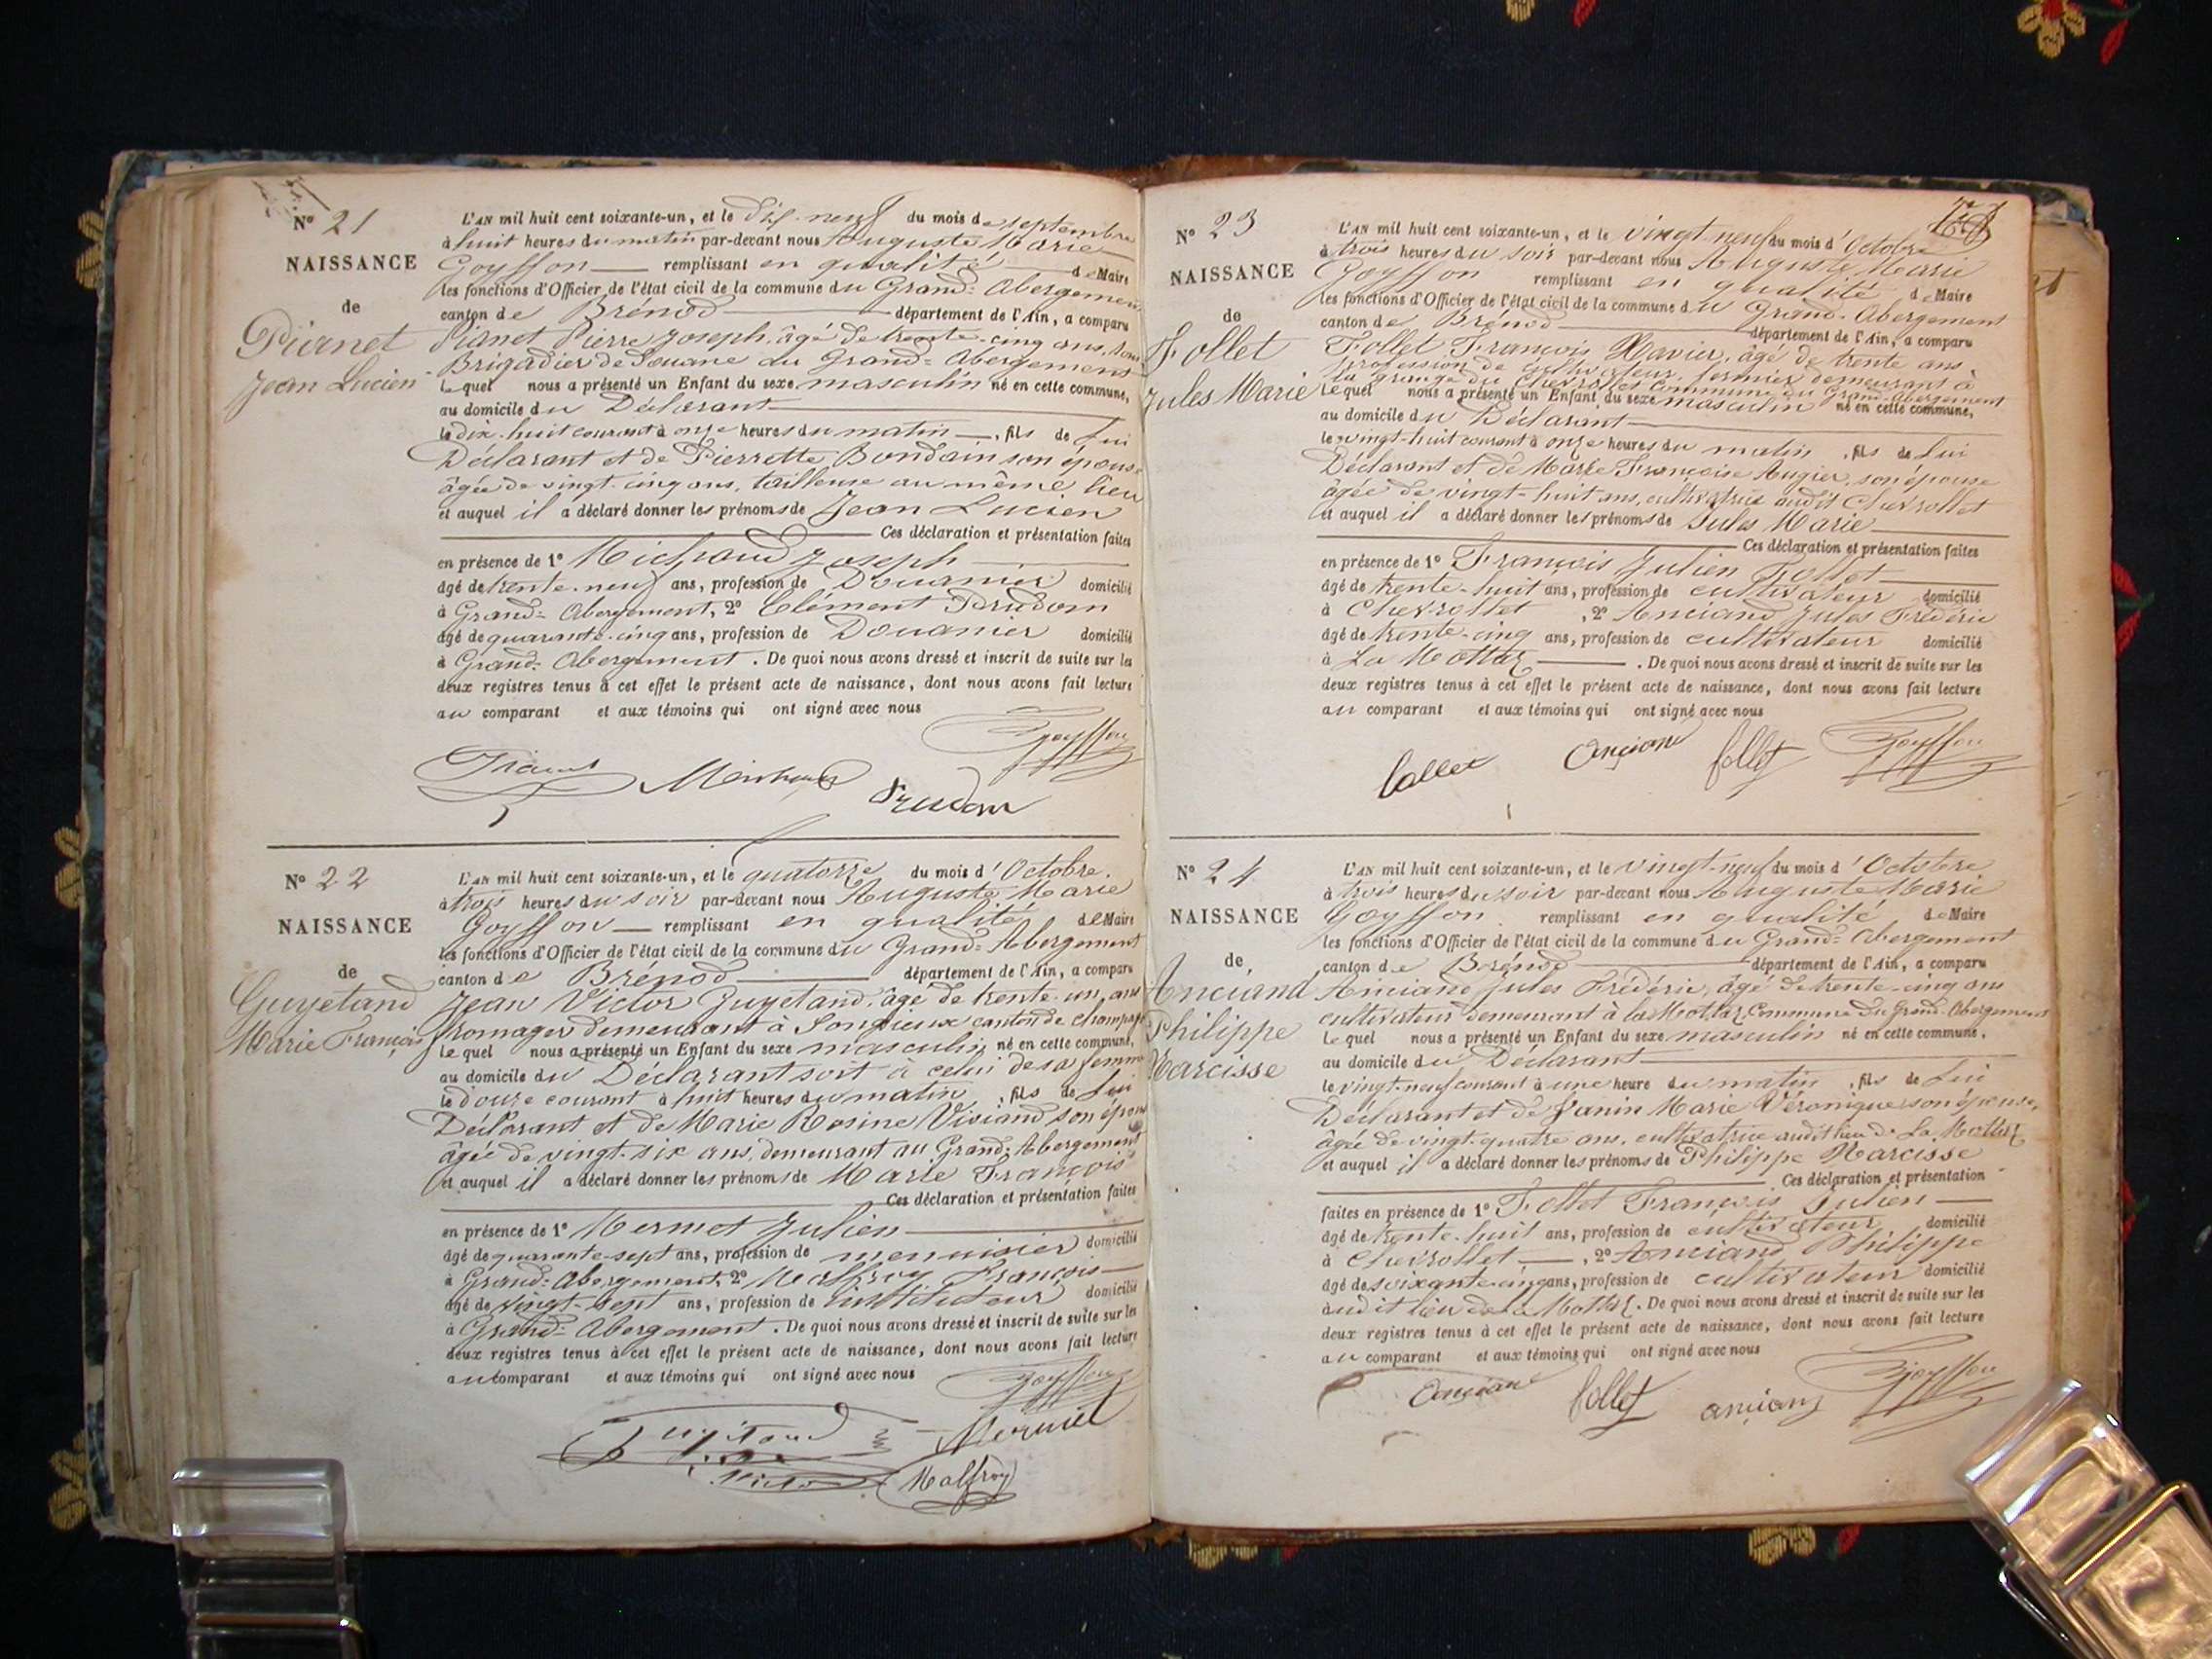 N° 21
NAISSANCE
de
Pianet
Jean Lucien
L'AN mil huit cent soixante-un, et le dix-neuf du mois de septembre
à huit heures du matin par-devant nous Auguste Marie
Goyffon remplissant en qualité de Maire
les fonctions d'Officier de l'état civil de la commune du Grand-Abergement
canton de Brénod département de l'Ain, a comparu
Pianet Pierre Joseph, âgé de trente-cinq ans, sous
Brigadier de Douane au Grand-Abergement
lequel nous a présenté un Enfant du sexe masculin né en cette commune,
au domicile du Déclarant
le dix-huit courant à onze heures du matin, fils de Lui
Déclarant et de Pierrette Bondain son épouse
âgée de vingt-cinq ans, tailleuse au même lieu
et auquel il a déclaré donner les prénoms de Jean Lucien
Ces déclaration et présentation faites
en présence de 1° Michaud Joseph
âgé de trente-neuf ans, profession de Douanier domicilié
à Grand-Abergement, 2° Clément Prudom
âgé de quarante-cinq ans, profession de Douanier domicilié
à Grand-Abergement. De quoi nous avons dressé et inscrit de suite sur les
deux registres tenus à cet effet le présent acte de naissance, dont nous avons fait lecture
au comparant et aux témoins qui ont signé avec nous
Goyffon
Pianet Michaud Prudom
N° 22
NAISSANCE
de
Guyetand
Marie François
L'AN mil huit cent soixante-un, et le quatorze du mois d'Octobre.
à trois heures du soir par-devant nous Auguste Marie
Goyffon remplissant en qualité de Maire
les fonctions d'Officier de l'état civil de la commune du Grand-Abergement
canton de Brénod département de l'Ain, a comparu
Jean Victor Guyetand, âgé de trente-un ans
fromager demeurant à Songieux canton de Champagne
lequel nous a présenté un Enfant du sexe masculin né en cette commune,
au domicile du Déclarant soit à celui de sa femme
le douze courant à huit heures du matin, fils de Lui
Déclarant et de Marie Rosine Viviand son épouse
âgée de vingt-six ans, demeurant au Grand-Abergement
et auquel il a déclaré donner les prénoms de Marie François
Ces déclaration et présentation faites
en présence de 1° Mermet Julien
âgé de quarante-sept ans, profession de menuisier domicilié
à Grand-Abergement, 2° Malfroy François
âgé de vingt-sept ans, profession de instituteur domicilié
à Grand-Abergement. De quoi nous avons dressé et inscrit de suite sur les
deux registres tenus à cet effet le présent acte de naissance, dont nous avons fait lecture
au comparant et aux témoins qui ont signé avec nous
Goyffon
Mermet
Victor Malfroy
N° 23
NAISSANCE
de
Follet
Jules Marie
L'AN mil huit cent soixante-un, et le vingt-neuf du mois d'Octobre
à trois heures du soir par-devant nous Auguste Marie
Goyffon remplissant en qualité de Maire
les fonctions d'Officier de l'état civil de la commune du Grand-Abergement
canton de Brénod département de l'Ain, a comparu
Follet François Xavier, âgé de trente ans
profession de cultivateur, fermier demeurant à
la grange du Chevrollet commune du Grand-Abergement
lequel nous a présenté un Enfant du sexe masculin né en cette commune,
au domicile du Déclarant
le vingt-huit courant à onze heures du matin, fils de Lui
Déclarant et de Marie Françoise Augier, son épouse
âgée de vingt-huit ans, cultivatrice audit Chevrollet
et auquel il a déclaré donner les prénoms de Jules Marie
Ces déclaration et présentation faites
en présence de 1° François Julien Follet
âgé de trente-huit ans, profession de cultivateur domicilié
à Chevrollet, 2° Anciand Jules Frédéric
âgé de trente-cinq ans, profession de cultivateur domicilié
à La Mottaz. De quoi nous avons dressé et inscrit de suite sur les
deux registres tenus à cet effet le présent acte de naissance, dont nous avons fait lecture
au comparant et aux témoins qui ont signé avec nous
follet Goyffon
N° 24
NAISSANCE
de
Anciand
Philippe
Narcisse
L'AN mil huit cent soixante-un, et le vingt-neuf du mois d'Octobre
à trois heures du soir par-devant nous Auguste Marie
Goyffon remplissant en qualité de Maire
les fonctions d'Officier de l'état civil de la commune du Grand-Abergement
canton de Brénod département de l'Ain, a comparu
Anciand Jules Frédéric, âgé de trente-cinq ans
cultivateur demeurant à la Mottaz Commune du Grand-Abergement
lequel nous a présenté un Enfant du sexe masculin né en cette commune.
au domicile du Déclarant
le vingt-neuf courant à une heure du matin, fils de Lui
Déclarant et de Janin Marie Véronique son épouse,
âgée de vingt-quatre ans, cultivatrice audit lieu de La Mottaz
et auquel il a déclaré donner les prénoms de Philippe Narcisse
Ces déclaration et présentation
faites en présence de 1° Follet François Julien
âgé de trente-huit ans, profession de cultivateur domicilié
à Chevrollet, 2° Anciand Philippe
âgé de soixante-cinq ans, profession de cultivateur domicilié
audit lieu de la Mottaz. De quoi nous avons dressé et inscrit de suite sur les
deux registres tenus à cet effet le présent acte de naissance, dont nous avons fait lecture
au comparant et aux témoins qui ont signé avec nous
follet Goyffon